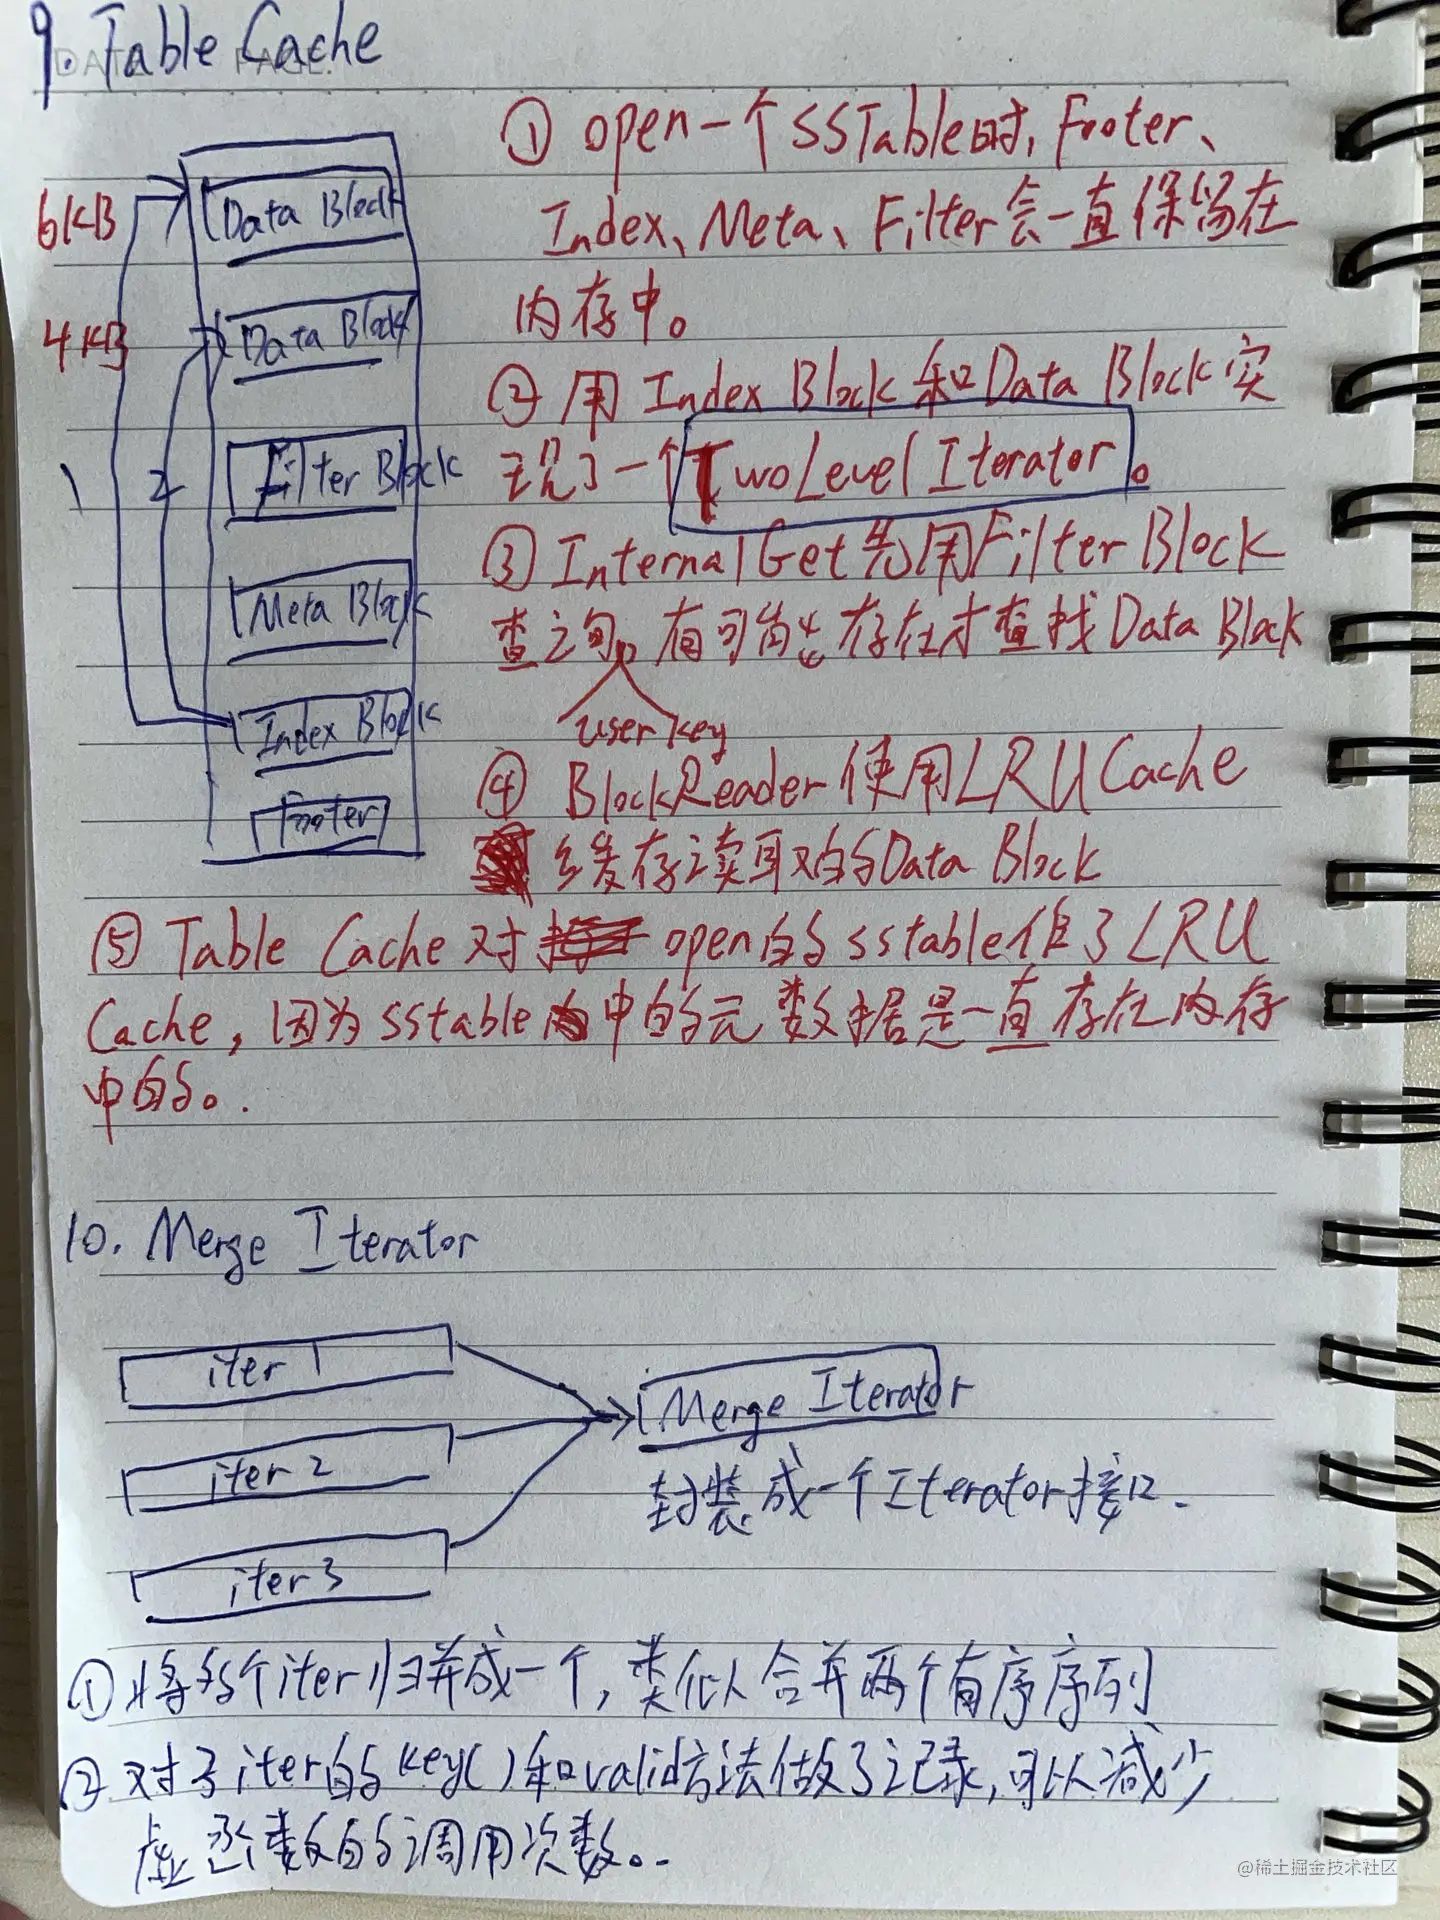 9. Table Cache
DATE PAGE
6KB
Data Block
4KB
Data Block
1
2
Filter Block
Meta Block
Index Block
Footer
① open一个SSTable时, Footer、
Index、Meta、Filter会一直保留在
内存中。
② 用Index Block和Data Block实
现了一个TwoLevelIterator。
③ InternalGet先用Filter Block
查询。有可能存在才查找Data Block
user key
④ BlockReader使用LRUCache
缓存读取的Data Block
⑤ Table Cache对open的sstable做了LRU
Cache, 因为sstable中的元数据是一直存在内存
中的。.
10. Merge Iterator
iter 1
iter 2
iter 3
Merge Iterator
封装成一个Iterator接口.
① 将多个iter归并成一个, 类似合并两个有序序列
② 对于iter的key()和valid方法做了记录, 可以减少
虚函数的调用次数。.
@稀土掘金技术社区